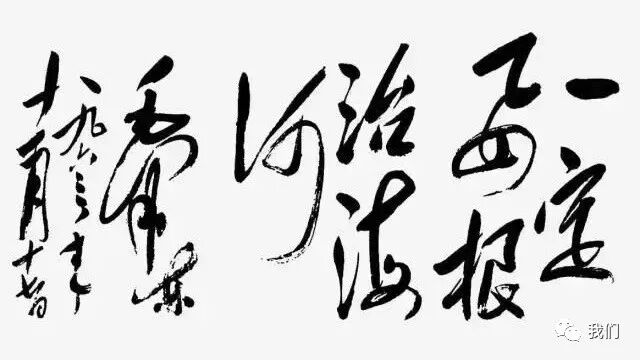 一定
要根
治海
河
毛泽东
一九六三年
十一月十七日
我们